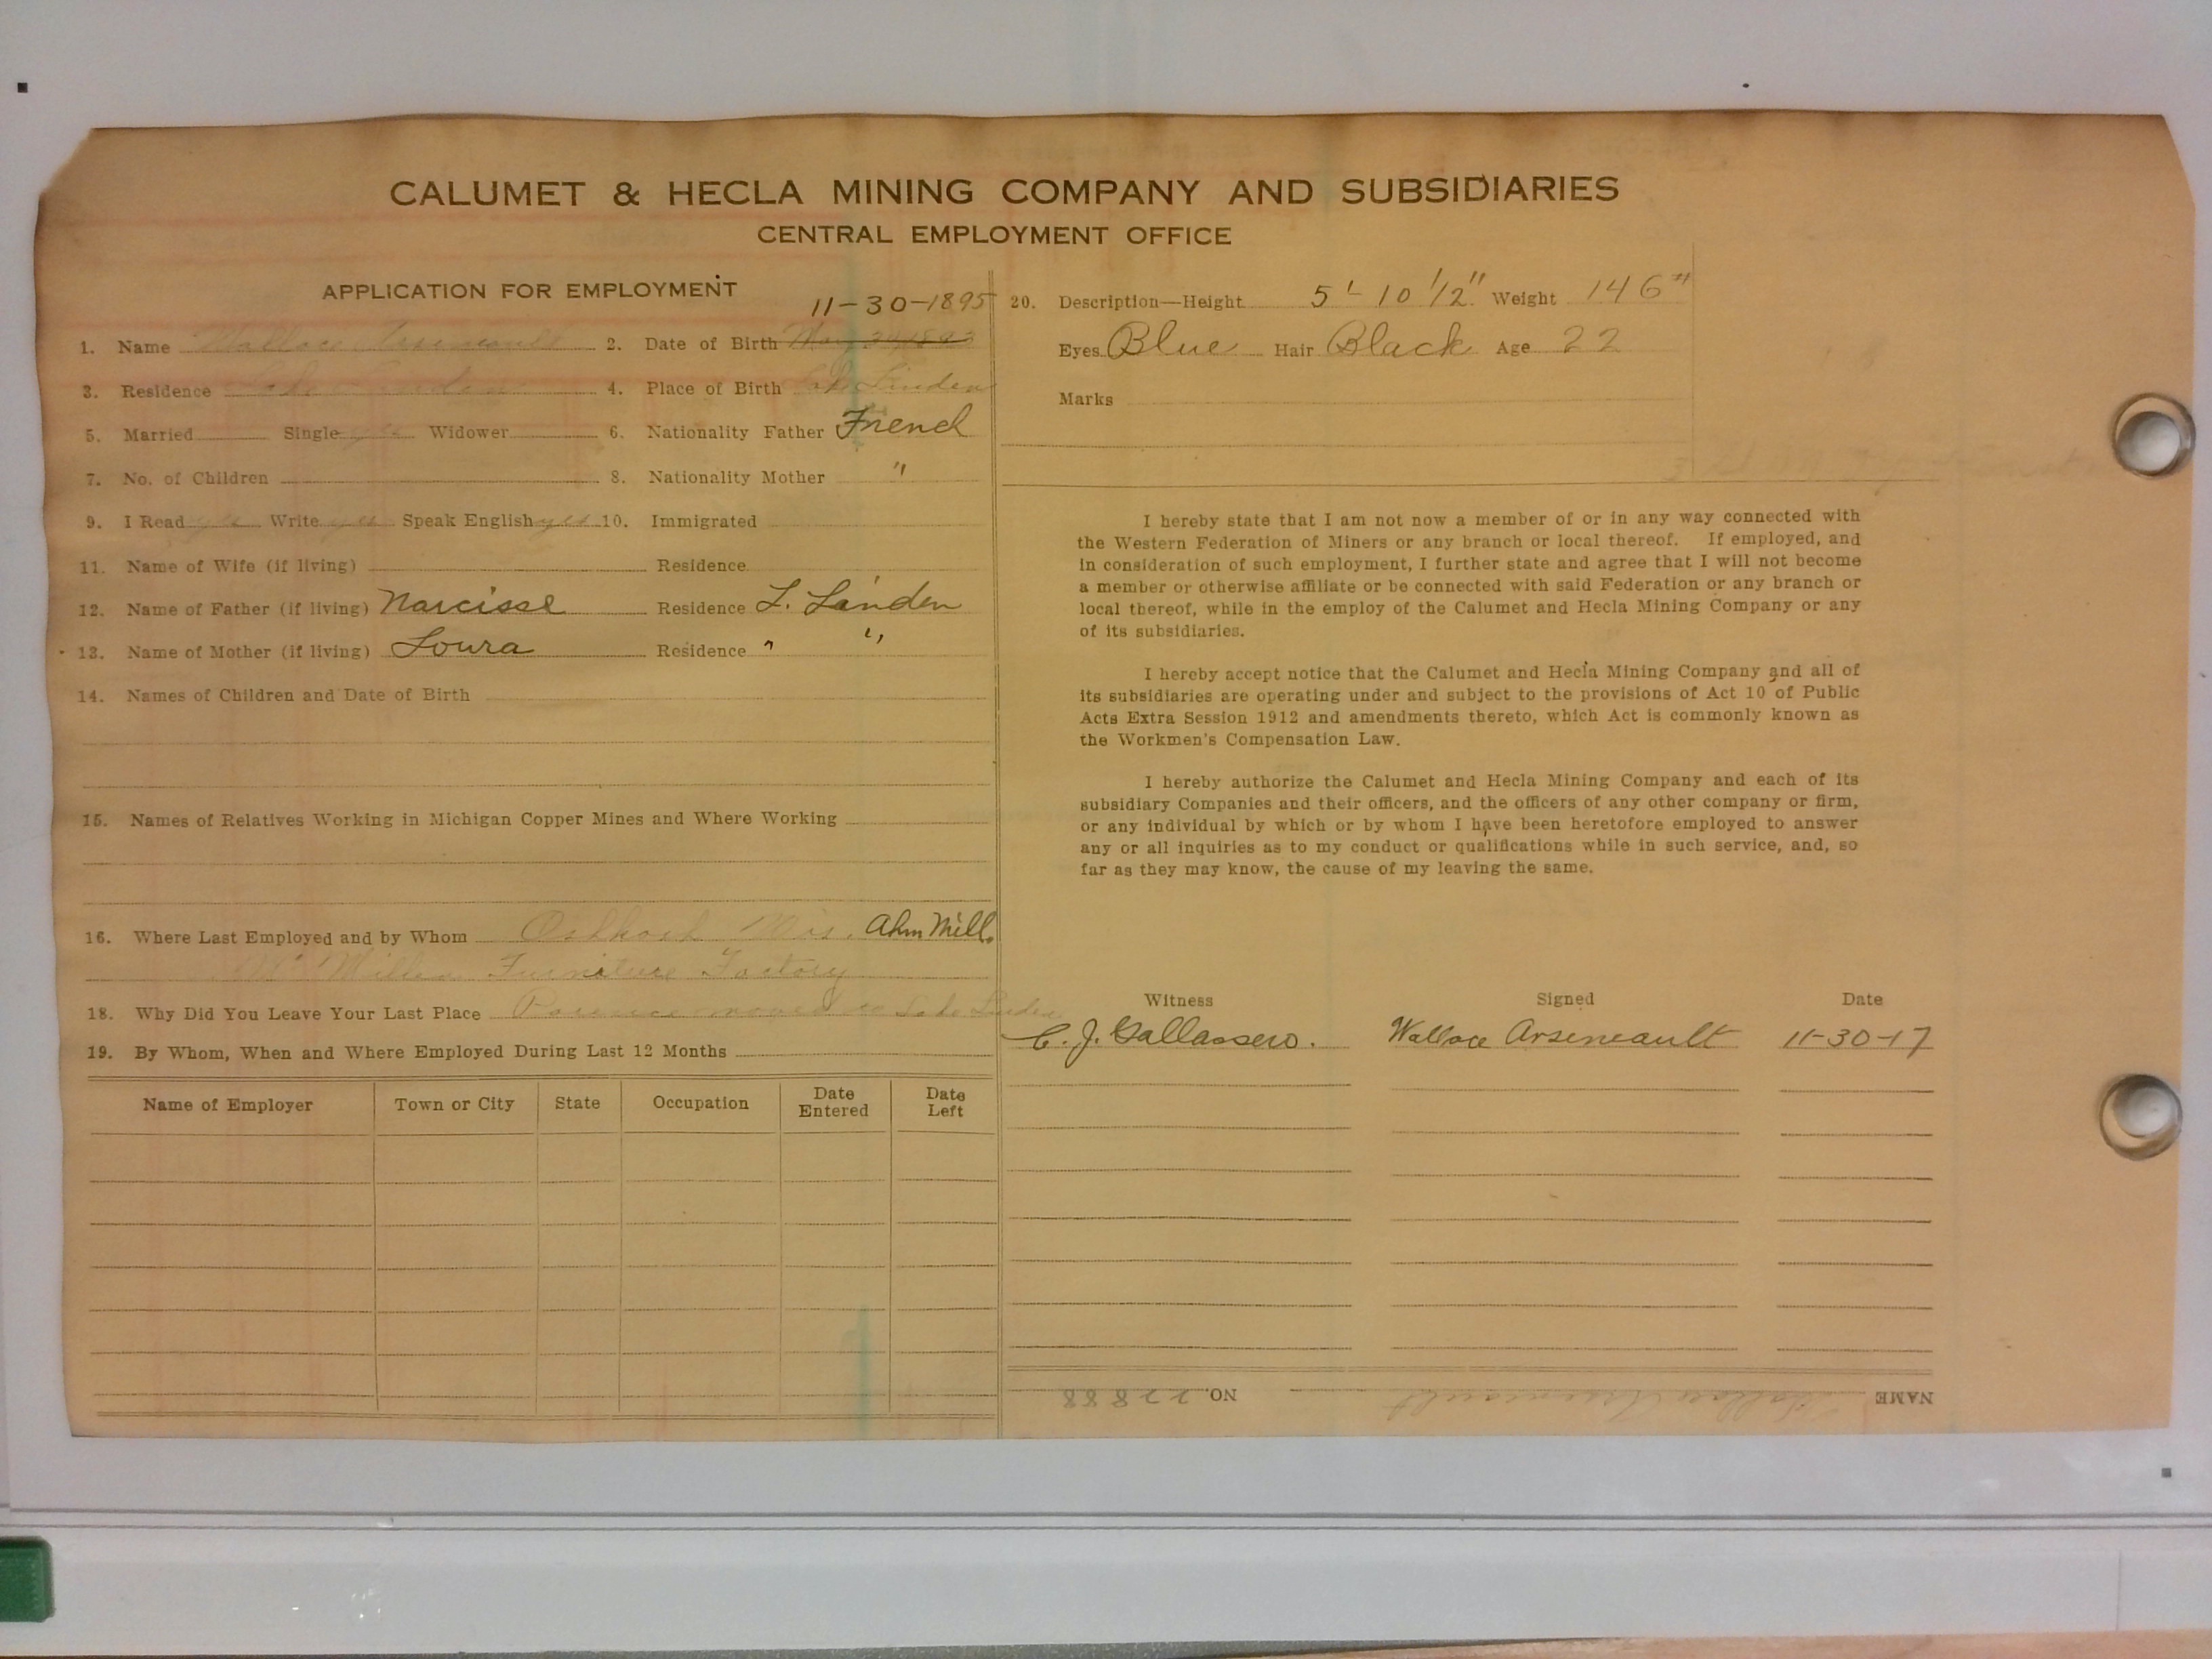 CALUMET & HECLA MINING COMPANY AND SUBSIDIARIES
CENTRAL EMPLOYMENT OFFICE
APPLICATION FOR EMPLOYMENT
11-30-1895
1. Name Wallace Arseneault 2. Date of Birth
3. Residence Lake Linden 4. Place of Birth Lake Linden
5. Married Single yes Widower 6. Nationality Father French
7. No. of Children 8. Nationality Mother "
9. I Read yes Write yes Speak English yes 10. Immigrated
11. Name of Wife (if living) Residence
12. Name of Father (if living) Narcisse Residence L. Linden
13. Name of Mother (if living) Loura Residence " "
14. Names of Children and Date of Birth
15. Names of Relatives Working in Michigan Copper Mines and Where Working
16. Where Last Employed and by Whom Oshkosh Wis. Ahm Mill.
Mc Millen Furniture Factory
18. Why Did You Leave Your Last Place moved to Lake Linden
19. By Whom, When and Where Employed During Last 12 Months
Name of Employer Town or City State Occupation Date Entered Date Left
20. Description—Height 5'-10 1/2" Weight 146"
Eyes Blue Hair Black Age 22
Marks
I hereby state that I am not now a member of or in any way connected with
the Western Federation of Miners or any branch or local thereof. If employed, and
in consideration of such employment, I further state and agree that I will not become
a member or otherwise affiliate or be connected with said Federation or any branch or
local thereof, while in the employ of the Calumet and Hecla Mining Company or any
of its subsidiaries.
I hereby accept notice that the Calumet and Hecla Mining Company and all of
its subsidiaries are operating under and subject to the provisions of Act 10 of Public
Acts Extra Session 1912 and amendments thereto, which Act is commonly known as
the Workmen's Compensation Law.
I hereby authorize the Calumet and Hecla Mining Company and each of its
subsidiary Companies and their officers, and the officers of any other company or firm,
or any individual by which or by whom I have been heretofore employed to answer
any or all inquiries as to my conduct or qualifications while in such service, and, so
far as they may know, the cause of my leaving the same.
Witness Signed Date
C. J. Gallassero. Wallace Arseneault 11-30-17
NAME Wallace Arseneault NO. 22888